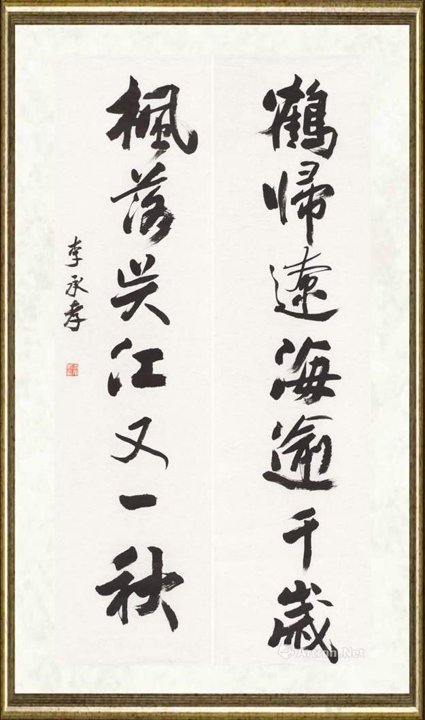 鶴歸遼海逾千歲
楓落吴江又一秋
李承孝
Artron.Net